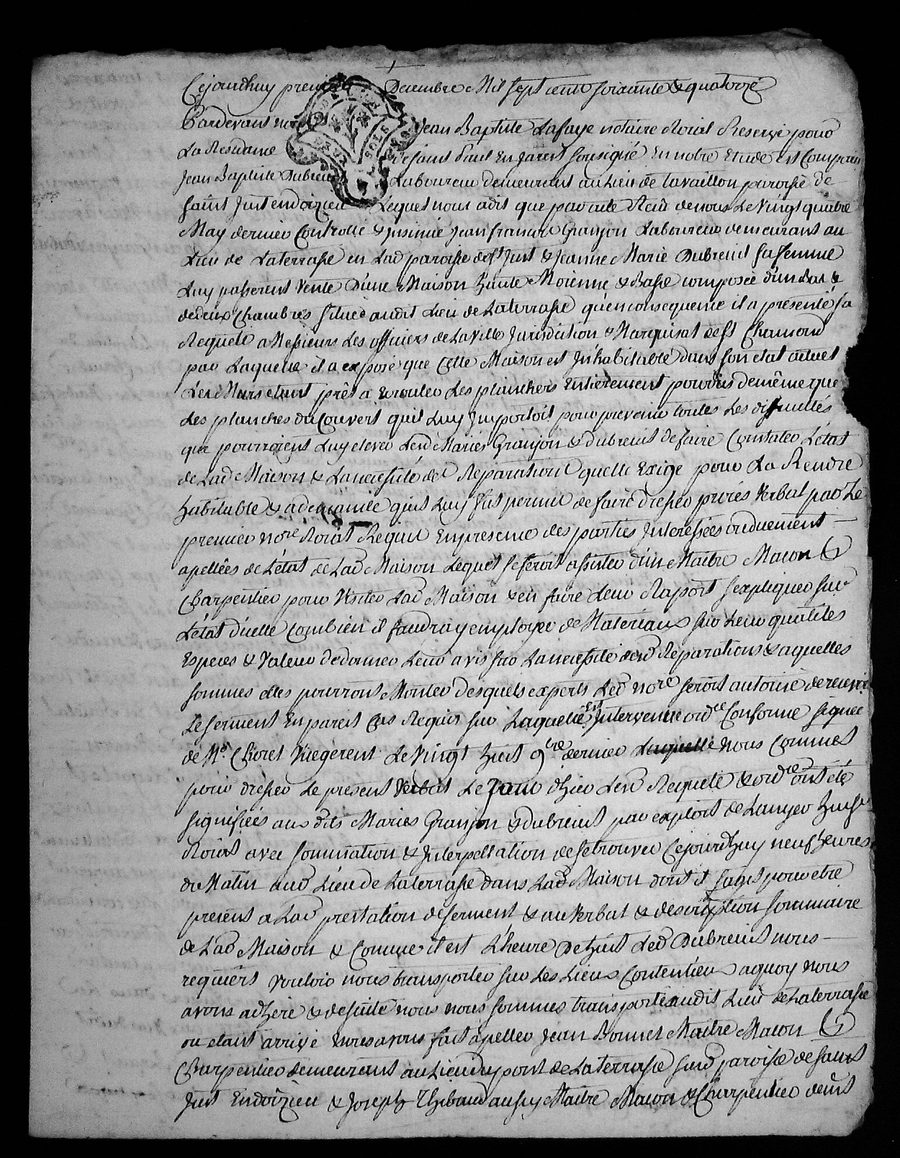 Cejourdhuy premier Decembre Mil sept cents soixante & quatorze
Pardevant nous Jean Baptiste Lafaye notaire Roial Reservé pour
La Residance de saint Paul En Jarest soussigné En notre Etude est Comparu
Jean Baptiste Dubreuil Laboureur demeurant au Lieu de tavaillon paroisse de
saint Just en doizieu Lequel nous a dit que par acte Reçû de nous Le Vingt quatre
May dernier Controllé & Insinué Jean François Granjon Laboureur demeurant au
Lieu de Laterrasse en Lad paroisse de St Just & Jeanne Marie Dubreuil sa femme
Luy passerent Vente D'une Maison haute Moienne & Basse composée d'un Bas &
de deux Chambres Situé audit Lieu de Laterrasse qu'en consequence il a presenté sa
Requete a Messieurs Les officiers de La Ville Jurisdiction & Marquisat de St Chamond
par Laquelle il a exposé que Cette Maison est Inhabitable dans son état actuel
Les Murs etant prêts a ecrouler Les planchers Entierement pourris de même que
Les planches du Couvert qu'il Luy Importoit pour prevenir toutes Les difficultés
que pourroient Luy elever Lesd Mariés Granjon & dubreuil de faire Constater L'état
de Lad Maison & La necessité des Reparations quelle Exige pour La Rendre
habitable & a demandé qu'il Luy fût permis de faire dresser procés Verbal par Le
premier nore Roial Requis En presence des parties Interessées ou duement
apellées de L'état de Lad Maison Lequel se feroit assister d'un Maitre Macon &
Charpentier pour Visiter Lad Maison & en faire Leur Raport s'expliquer sur
L'état d'icelle Combien il faudra y employer de Materiaux sur Leur qualités
Especes & Valeur de donner Leur avis sur La necessité desd Reparations & a quelles
sommes elles pourront Monter desquels experts Led nore seroit autorisé de recevoir
Le serment En pareil Cas Requis sur Laquelle est Intervenue ordce Conforme signée
de Me Chorel Viegerent Le Vingt huit 9bre dernier Laquelle nous Commet
pour dresser Le present Verbal Le Jour d'hier Lesd Requete & ordce ont été
signifiées aux dits Mariés Granjon & dubreuil par exploit de Lanyer huissr
Roial avec sommation & Interpellation de se trouver Cejourdhuy neuf heures
du Matin aud Lieu de Laterrasse dans Lad Maison dont il s'agit pour etre
present a Lad prestation de serment & au Verbal & description sommaire
de Lad Maison & Comme il est L'heure De huit Led Dubreuil nous
requiért Vouloir nous transporter sur Les Lieux Contentieux a quoy nous
avons adheré & de suite nous nous sommes transporté audit Lieu de Laterrasse
ou etant arrivé nous avons fait apeller Jean Bonnet Maitre Macon &
Charpentier demeurant au Lieu du pont de Laterrasse susd paroisse de saint
Just En doizieu & Joseph Thibaud aussy Maitre Macon & Charpentier demt